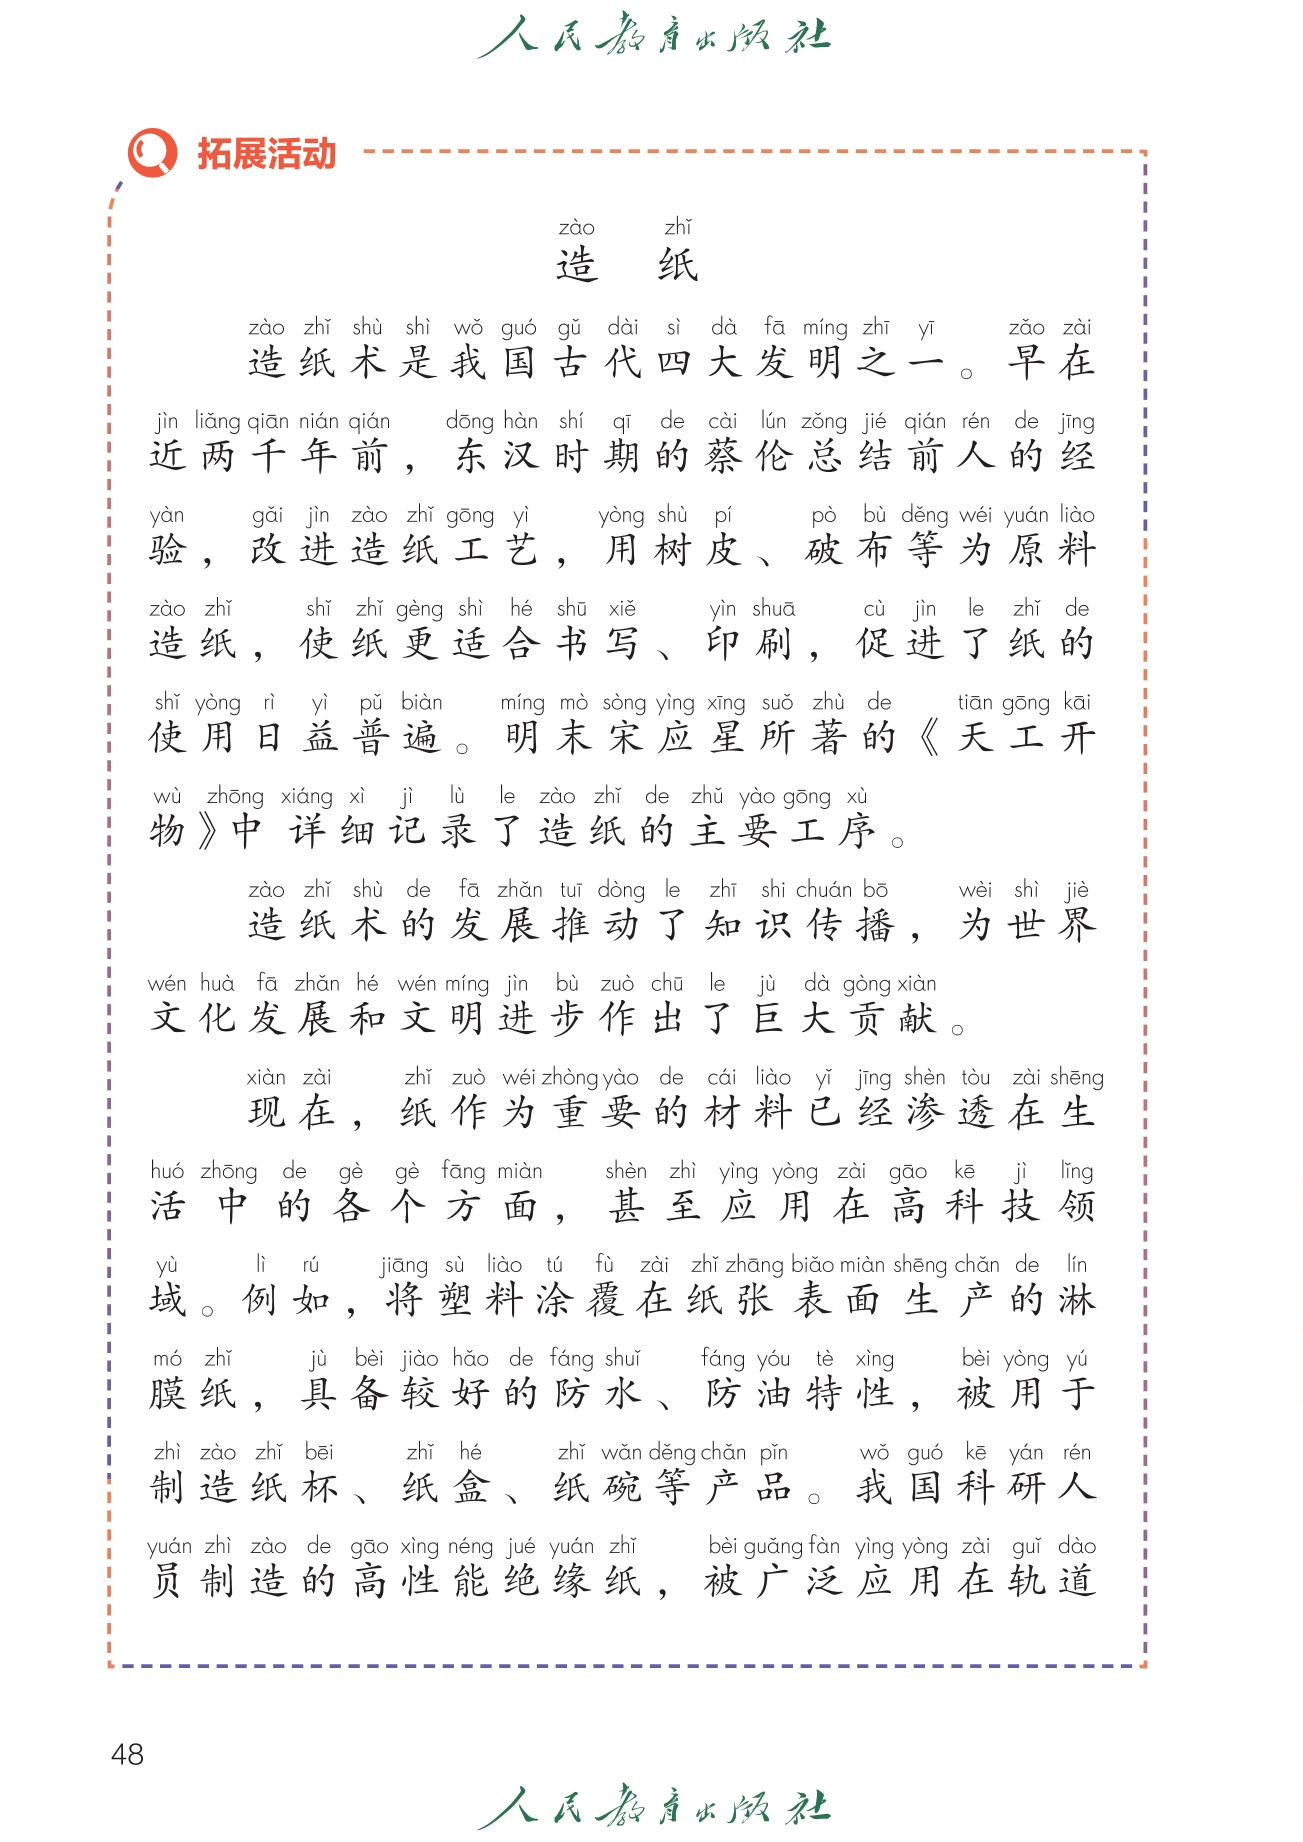 人民教育出版社
拓展活动
zào zhǐ
造 纸
zào zhǐ shù shì wǒ guó gǔ dài sì dà fā míng zhī yī zǎo zài
造纸术是我国古代四大发明之一。早在
jìn liǎng qiān nián qián dōng hàn shí qī de cài lún zǒng jié qián rén de jīng
近两千年前，东汉时期的蔡伦总结前人的经
yàn gǎi jìn zào zhǐ gōng yì yòng shù pí pò bù děng wéi yuán liào
验，改进造纸工艺，用树皮、破布等为原料
zào zhǐ shǐ zhǐ gèng shì hé shū xiě yìn shuā cù jìn le zhǐ de
造纸，使纸更适合书写、印刷，促进了纸的
shǐ yòng rì yì pǔ biàn míng mò sòng yìng xīng suǒ zhù de tiān gōng kāi
使用日益普遍。明末宋应星所著的《天工开
wù zhōng xiáng xì jì lù le zào zhǐ de zhǔ yào gōng xù
物》中详细记录了造纸的主要工序。
zào zhǐ shù de fā zhǎn tuī dòng le zhī shi chuán bō wèi shì jiè
造纸术的发展推动了知识传播，为世界
wén huà fā zhǎn hé wén míng jìn bù zuò chū le jù dà gòng xiàn
文化发展和文明进步作出了巨大贡献。
xiàn zài zhǐ zuò wéi zhòng yào de cái liào yǐ jīng shèn tòu zài shēng
现在，纸作为重要的材料已经渗透在生
huó zhōng de gè gè fāng miàn shèn zhì yìng yòng zài gāo kē jì lǐng
活中的各个方面，甚至应用在高科技领
yù lì rú jiāng sù liào tú fù zài zhǐ zhāng biǎo miàn shēng chǎn de lín
域。例如，将塑料涂覆在纸张表面生产的淋
mó zhǐ jù bèi jiào hǎo de fáng shuǐ fáng yóu tè xìng bèi yòng yú
膜纸，具备较好的防水、防油特性，被用于
zhì zào zhǐ bēi zhǐ hé zhǐ wǎn děng chǎn pǐn wǒ guó kē yán rén
制造纸杯、纸盒、纸碗等产品。我国科研人
yuán zhì zào de gāo xìng néng jué yuán zhǐ bèi guǎng fàn yìng yòng zài guǐ dào
员制造的高性能绝缘纸，被广泛应用在轨道
48
人民教育出版社